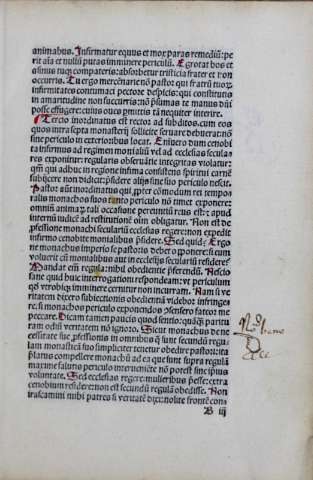 animabus. Infirmatur equus et mox paras remediũ: pe
rit aĩa et nullũ putas imminere periculũ. Egrotat bos et
asinus tuꝰ comparetis: absorbetur tristicia frater et non
occurris. Tu ergo mercẽnarie nõ pastor qui fratrũ tuoꝝ
infirmitates contumaci pectore despicis: qui constitutis
in amaritudine non succurris: nõ putas te manus dñi
posse effugere: cuius oues pmittis tã nequiter interire.
Tercio inordinatus est rector ad subditos. cum eos
quos infra septa monasterij sollicite seruare debuerat: nõ
sine periculo in exterioribus locat. Eniuero dum cenobi
ta infirmus ad regimen monialiũ vel ad ecclesias secula
res exponitur: regularis obseruãtie integritas violatur:
qm̃ qui adhuc in regione infima consistens spiritui carnẽ
subijcere non didicit: psidere alijs sine suo periculo nescit.
Pastor aũt inordinatus qui, ꝓpter cõmodum rei tempo
ralis monachos suos tanto periculo nõ timet exponere:
omniũ animaꝝ tali occasione pereuntiũ reus est: et apud
internũ iudicẽ ad restitutionẽ oĩm obligatur. Non est de
ꝓfessione monachi seculariũ ecclesias regere: non expedit
infirmo cenobite monialibus psidere. Sed quid? Ergo
ne monachus imperio se pastoris debet opponere: si eum
voluerit cũ monialibus aut in ecclesijs seculariũ residere?
Mandat em̃ regula: nihil obedientie pferendũ. Nescio
sane quid huic interrogationi respondeam: vt periculum
qd vtrobiqꝫ imminere cernitur non incurram. Nam si ve
ritatem dixero subiectionis obedientiã videbor infringe
re: si monachos periculo exponendos censero fateor me
peccare. Dicam tamen paucis quod sentio: quãqꝫ paritu
ram odiũ veritatem nõ ignoro. Sicut monachus de ne
cessitate sue ꝓfessionis in omnibus q̃ sunt secundũ regu
lam monasticã suo simpliciter tenetur obedire pastori: ita
platus compellere monachũ ad ea que sunt ꝯtra regulã
maxime salutis periculo interueniẽte nõ potest sine ipsius
voluntate. Sed ecclesias regere: mulieribus pesse: extra
cenobium residere: non est secundũ regulã obedisse. Non
irascamini mihi patres si veritatẽ dixe: nolite frontẽ con-
B iij